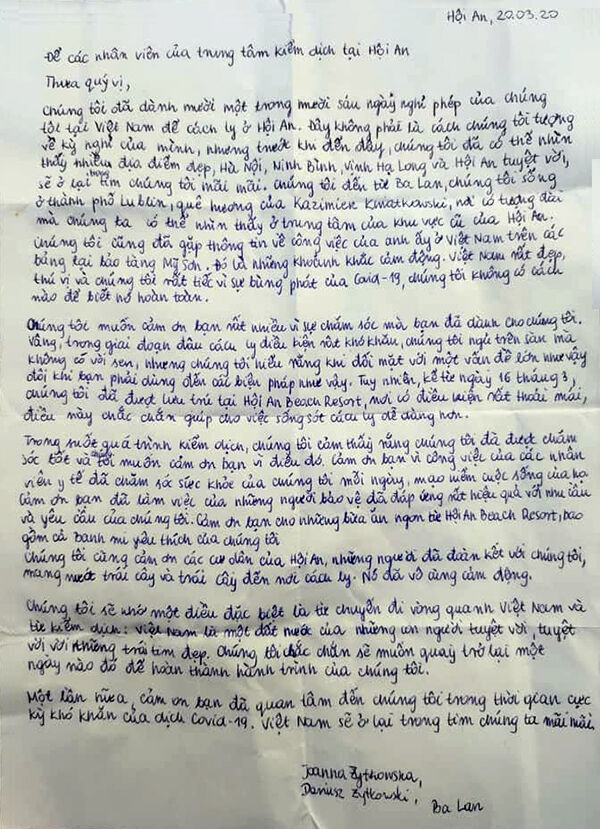 Hội An, 20.03.20
Để các nhân viên của trung tâm kiểm dịch tại Hội An
Thưa quý vị,
Chúng tôi đã dành mười một trong mười sáu ngày nghỉ phép của chúng
tôi tại Việt Nam để cách ly ở Hội An. Đây không phải là cách chúng tôi tượng
về kỳ nghỉ của mình, nhưng trước khi đến đây, chúng tôi đã có thể nhìn
thấy nhiều địa điểm đẹp, Hà Nội, Ninh Bình, vịnh Hạ Long và Hội An tuyệt vời,
sẽ ở lại trong tim chúng tôi mãi mãi. Chúng tôi đến từ Ba Lan, chúng tôi sống
ở thành phố Lublin, quê hương của Kazimierz Kwiatkowski, nơi có tượng đài
mà chúng ta có thể nhìn thấy ở trung tâm của khu vực cũ của Hội An.
Chúng tôi cũng đã gặp thông tin về công việc của anh ấy ở Việt Nam trên các
bảng tại bảo tàng Mỹ Sơn. Đó là những khoảnh khắc cảm động. Việt Nam rất đẹp,
thú vị và chúng tôi rất tiếc vì sự bùng phát của Covid-19, chúng tôi không có cách
nào để biết nó hoàn toàn.
Chúng tôi muốn cảm ơn bạn rất nhiều vì sự chăm sóc mà bạn đã dành cho chúng tôi.
Vâng, trong giai đoạn đầu cách ly điều kiện rất khó khăn, chúng tôi ngủ trên sàn mà
không có vòi sen, nhưng chúng tôi hiểu rằng khi đối mặt với một vấn đề lớn như vậy
đôi khi bạn phải dùng đến các biện pháp như vậy. Tuy nhiên, kể từ ngày 16 tháng 3,
chúng tôi đã được lưu trú tại Hội An Beach Resort, nơi có điều kiện rất thoải mái,
điều này chắc chắn giúp cho việc sống sót cách ly dễ dàng hơn.
Trong suốt quá trình kiểm dịch, chúng tôi cảm thấy rằng chúng tôi đã được chăm
sóc tốt và chúng tôi muốn cảm ơn bạn vì điều đó. Cảm ơn bạn vì công việc của các nhân
viên y tế đã chăm sóc sức khỏe của chúng tôi mỗi ngày, mạo hiểm cuộc sống của họ
Cảm ơn bạn đã làm việc của những người bảo vệ đã đáp ứng rất hiệu quả với nhu cầu
và yêu cầu của chúng tôi. Cảm ơn bạn cho những bữa ăn ngon từ Hội An Beach Resort, bao
gồm cả banh mi yêu thích của chúng tôi
Chúng tôi cũng cảm ơn các cư dân của Hội An, những người đã đoàn kết với chúng tôi,
mang nước trái cây và trái cây đến nơi cách ly. Nó đã vô cùng cảm động.
Chúng tôi sẽ nhớ một điều đặc biệt là từ chuyến đi vòng quanh Việt Nam và
từ kiểm dịch: Việt Nam là một đất nước của những con người tuyệt vời, tuyệt
vời với những trái tim đẹp. Chúng tôi chắc chắn sẽ muốn quay trở lại một
ngày nào đó để hoàn thành hành trình của chúng tôi.
Một lần nữa, cảm ơn bạn đã quan tâm đến chúng tôi trong thời gian cực
kỳ khó khăn của dịch Covid-19. Việt Nam sẽ ở lại trong tim chúng ta mãi mãi.
Joanna Żytkowska,
Dariusz Żytkowski,
Ba Lan